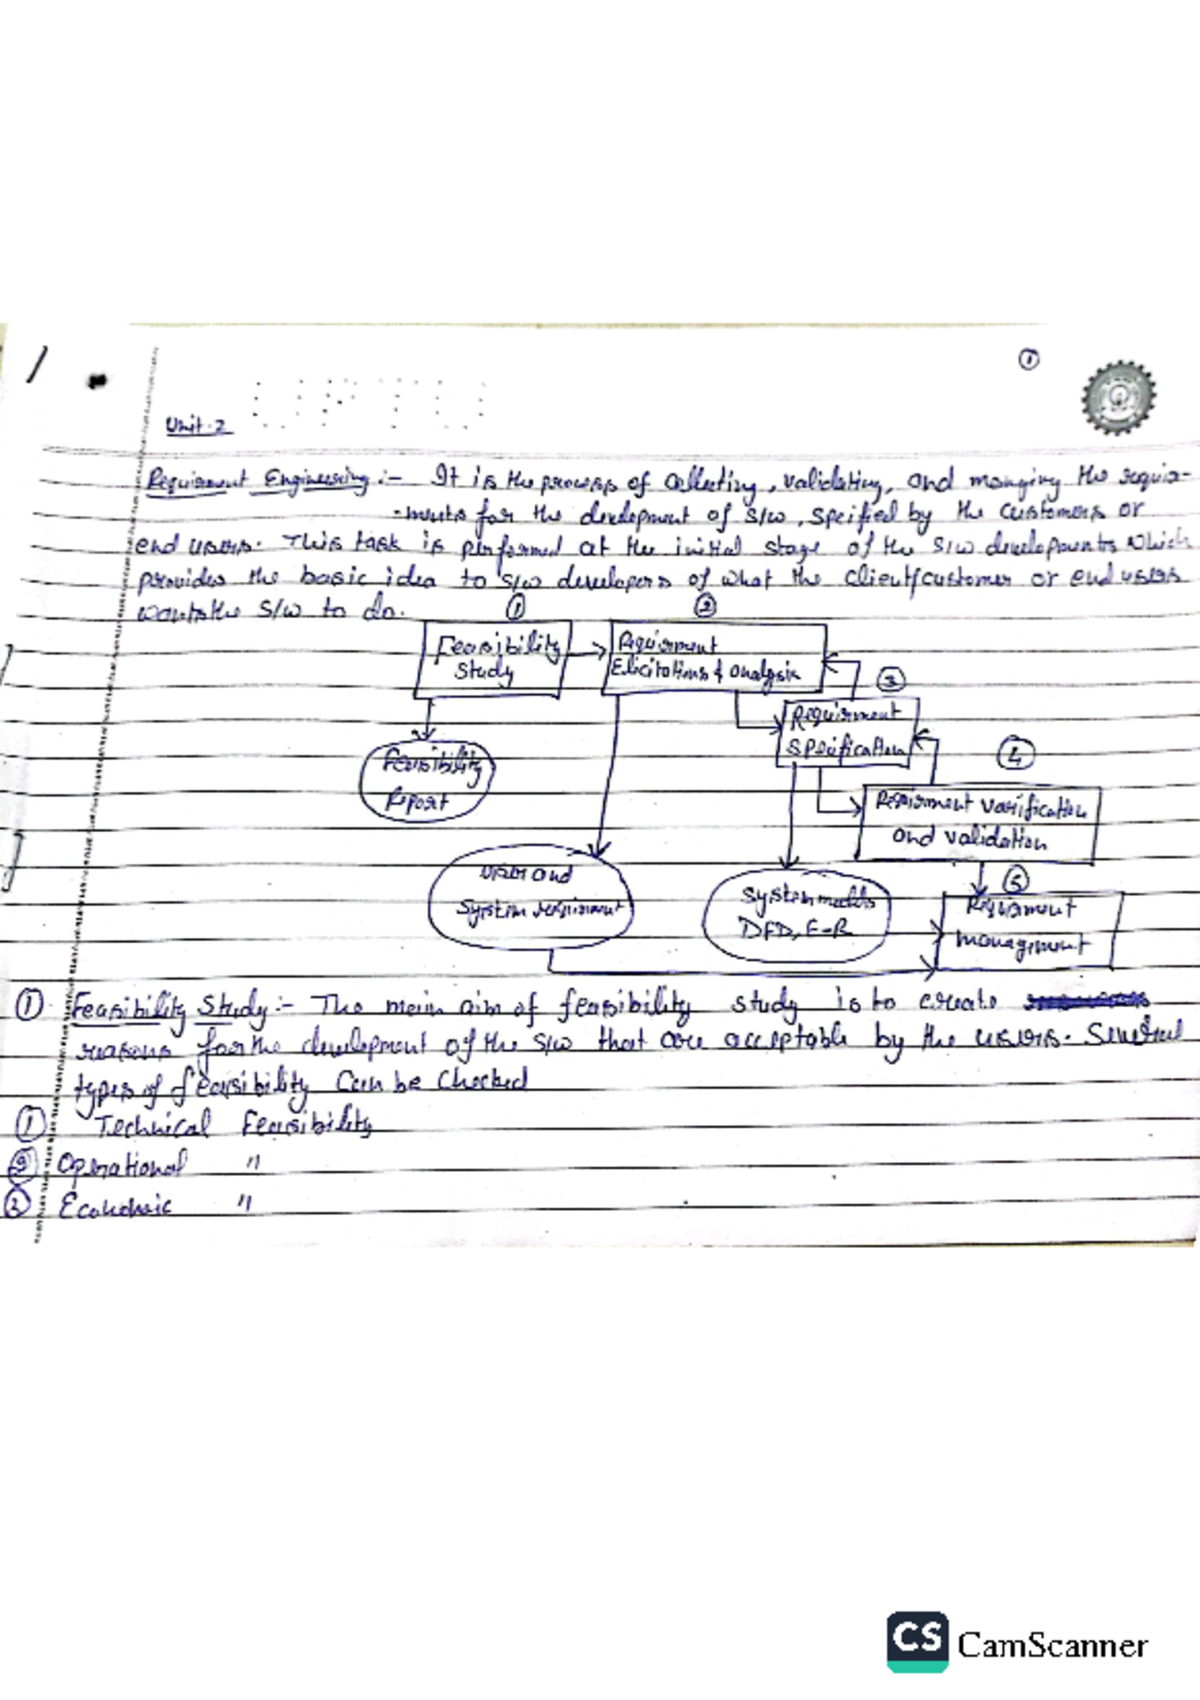 ①
Unit-2
Requirment Engineering :- It is the process of collecting, validating, and manging the requir-
-ments for the development of S/W, specified by the customers or
end users. This task is performed at the initial stage of the S/W developments which
provides the basic idea to S/W developers of what the client/customer or end users
wants the S/W to do.
① ②
Feasibility Study
Requirment Elicitations & analysis
③
Requirment Specification
④
Feasibility Report
Requirment varification and validation
User and System requirment
System models DFD, E-R
⑤
Requirment management
① Feasibility Study :- The main aim of feasibility study is to create
reasons for the development of the S/W that are acceptable by the users. Several
types of feasibility can be checked
① Technical Feasibility
② Operational "
③ Economic "
CS CamScanner